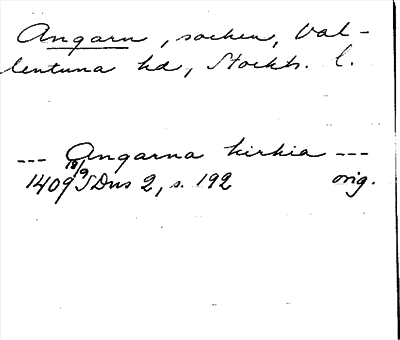 Angarn, socken, Val-
lentuna hd, Stockh. l.
--- Angarna kirkia ---
1409 18/9 SDns 2, s. 192 orig.